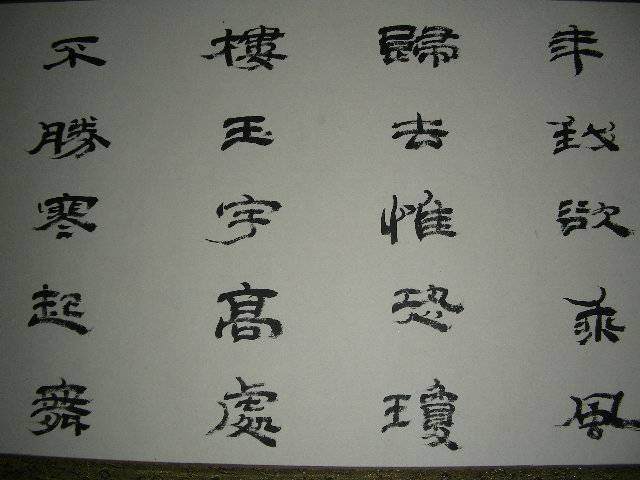 年我欲乘風
歸去惟恐瓊
樓玉宇高處
不勝寒起舞